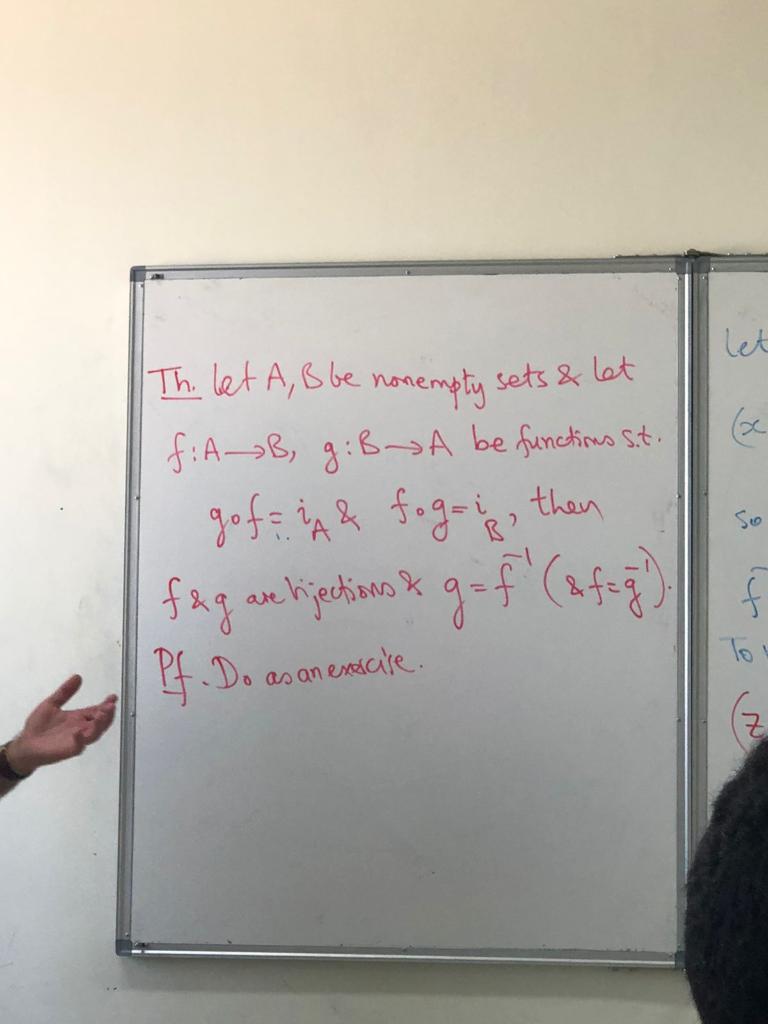 Th. let A, B be nonempty sets & let
f: A→B, g: B→A be functions s.t.
g∘f = i_A & f∘g = i_B, then
f & g are bijections & g = f⁻¹ (& f = g⁻¹).
Pf. Do as an exercise.
let
(x
so
f
To
(z